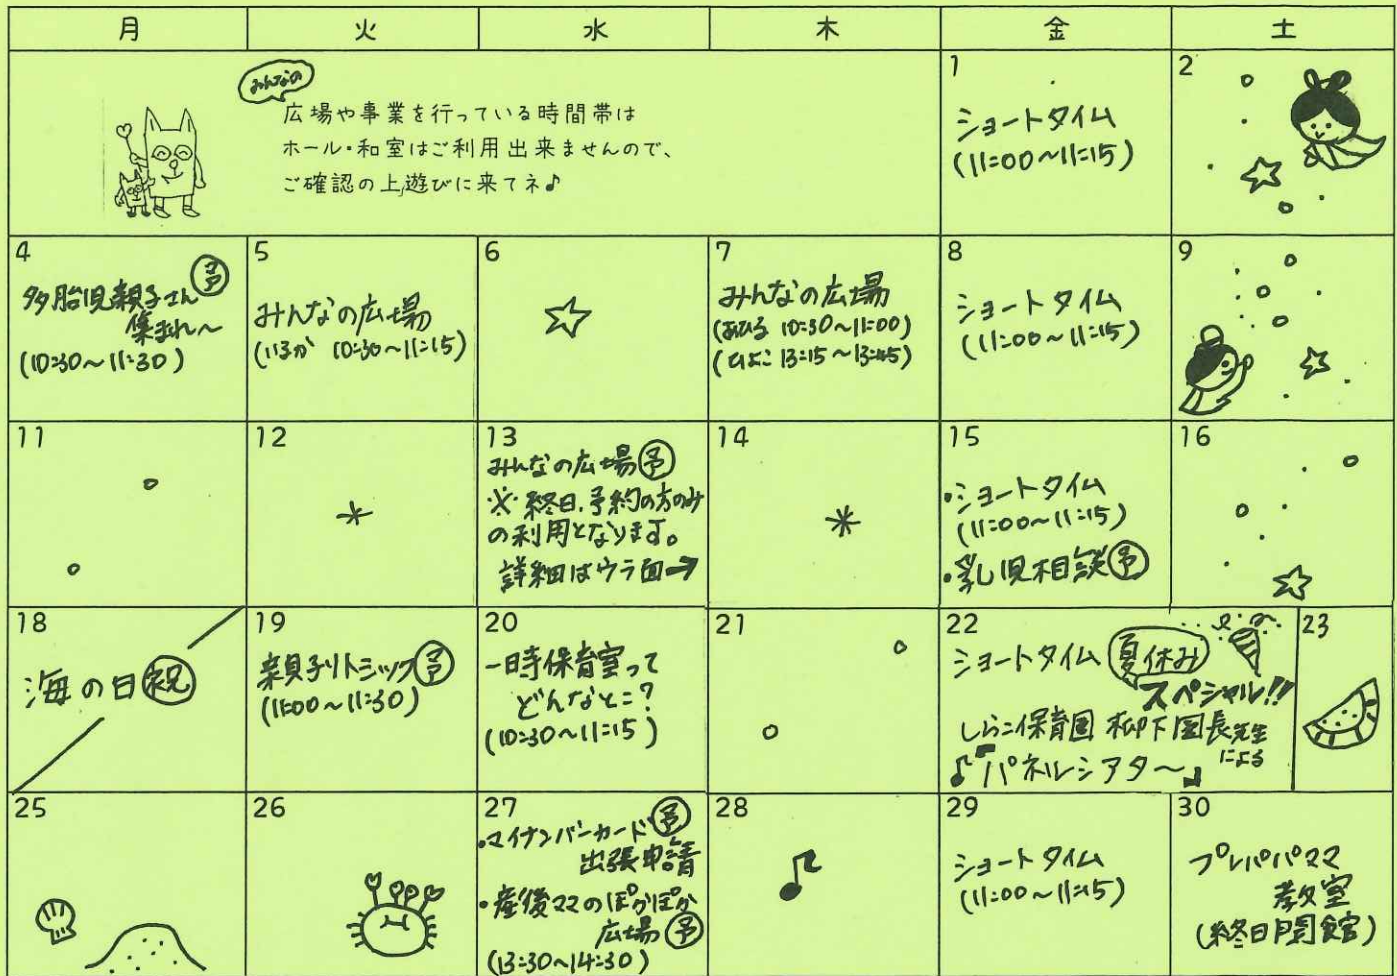 月 火 水 木 金 土
みんなの
広場や事業を行っている時間帯は
ホール・和室はご利用出来ませんので、
ご確認の上、遊びに来てネ♪
1
ショートタイム
(11:00～11:15)
2
4
多胎児親子さん 予
集まれ～
(10:30～11:30)
5
みんなの広場
(いるか 10:30～11:15)
6
7
みんなの広場
(あひる 10:30～11:00)
(ひよこ 13:15～13:45)
8
ショートタイム
(11:00～11:15)
9
11
12
13
みんなの広場 予
※終日、予約の方のみ
の利用となります。
詳細はウラ面→
14
15
・ショートタイム
(11:00～11:15)
・乳児相談 予
16
18
海の日 祝
19
親子リトミック 予
(11:00～11:30)
20
一時保育室って
どんなとこ?
(10:30～11:15)
21
22
ショートタイム 夏休み
スペシャル!!
しらこ保育園 柳下園長先生
による
♪『パネルシアター』
23
25
26
27
・マイナンバーカード 予
出張申請
・産後ママのぽかぽか
広場 予
(13:30～14:30)
28
29
ショートタイム
(11:00～11:15)
30
プレパパママ
教室
(終日閉館)